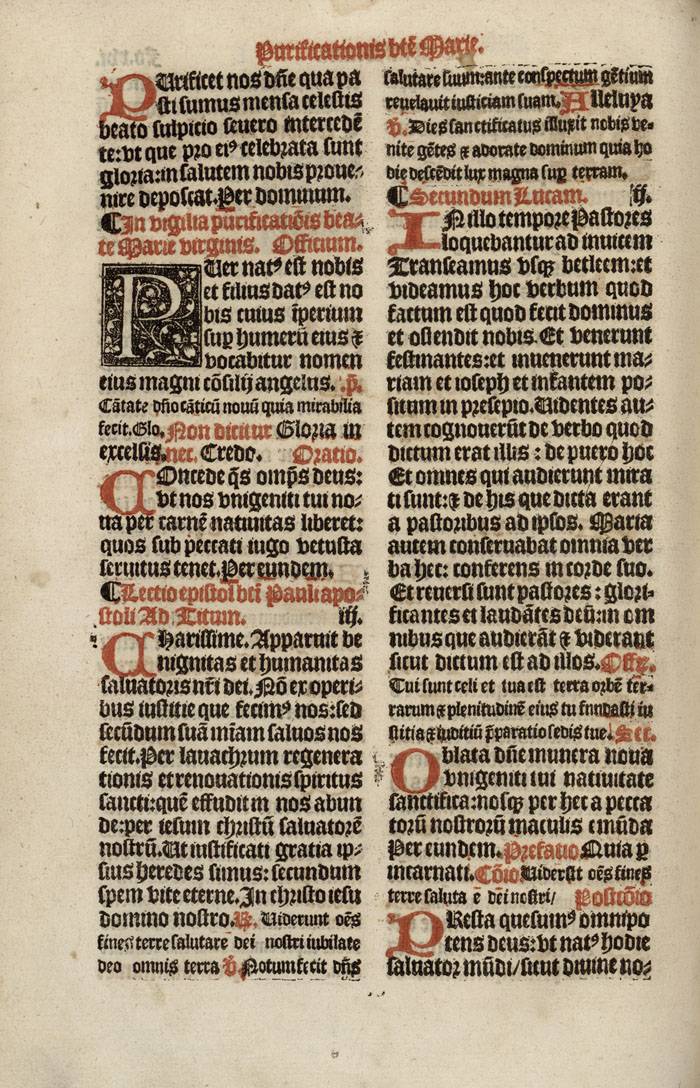 Purificationis btē Marie.
PUrificet nos dñe qua pa
sti sumus mensa celestis
beato sulpicio seuero intercedē
te: vt que pro eiꝰ celebrata sunt
gloria: in salutem nobis proue⸗
nire deposcat. Per dominum.
¶ In vigilia purificatiõis bea⸗
te Marie virginis. Officium.
PUer natꝰ est nobis
et filius datꝰ est no
bis cuius īperium
sup humerū eius ⁊
vocabitur nomen
eius magni cõsilij angelus. p̄.
Cãtate dño cãticū nouū quia mirabilia
fecit. Glo. Non dicitur Gloria in
excelsis. nec. Credo. Oratio.
COncede q̄s omp̄s deus:
vt nos vnigeniti tui no⸗
ua per carnē natiuitas liberet:
quos sub peccati iugo vetusta
seruitus tenet. Per eundem.
¶ Lectio epistol btī Pauli apo⸗
stoli Ad Titum. iij.
CHarissime. Apparuit be
nignitas et humanitas
saluatoris nr̄i dei. Nõ ex operi⸗
bus iustitie que fecimꝰ nos: sed
secūdum suã mīam saluos nos
fecit. Per lauachrum regenera
tionis et renouationis spiritus
sancti: quē effudit in nos abun
de: per iesum christū saluatorē
nostrū. Ut iustificati gratia ip⸗
sius heredes simus: secundum
spem vite eterne. In christo iesu
domino nostro. ℟. Viderunt oēs
fines terre salutare dei nostri iubilate
deo omnis terra ℣. Notum fecit dñs
salutare suum: ante conspectum gētium
reuelauit iusticiam suam. Alleluya
℣. Dies sanctificatus illuxit nobis ve⸗
nite gētes ⁊ adorate dominum quia ho
die descēdit lux magna sup terram.
¶ Secundum Lucam. ij.
IN illo tempore Pastores
loquebantur ad inuicem
Transeamus vsqȝ betleem: et
videamus hoc verbum quod
factum est quod fecit dominus
et ostendit nobis. Et venerunt
festinantes: et inuenerunt ma⸗
riam et ioseph et infantem po⸗
situm in presepio. Videntes au⸗
tem cognouerūt de verbo quod
dictum erat illis: de puero hoc
Et omnes qui audierunt mira
ti sunt: ⁊ de his que dicta erant
a pastoribus ad ipsos. Maria
autem conseruabat omnia ver
ba hec: conferens in corde suo.
Et reuersi sunt pastores: glori⸗
ficantes et laudãtes deū: in om
nibus que audierãt ⁊ viderant
sicut dictum est ad illos. Offꝛ.
Tui sunt celi et tua est terra orbē ter⸗
rarum ⁊ plenitudinē eius tu fundasti iu
stitia ⁊ iuditiū p̄paratio sedis tue. Sec.
OBlata dñe munera noua
vnigeniti tui natiuitate
sanctifica: nosqȝ per hec a pecca
torū nostrorū maculis emūda
Per eundem. Prefatio Quia ꝑ
incarnati. Cõio Viderūt oēs fines
terre saluta ē dei nostri/ Postcõio
PResta quesumꝰ omnipo
tens deus: vt natꝰ hodie
saluator mūdi/ sicut diuine no⸗